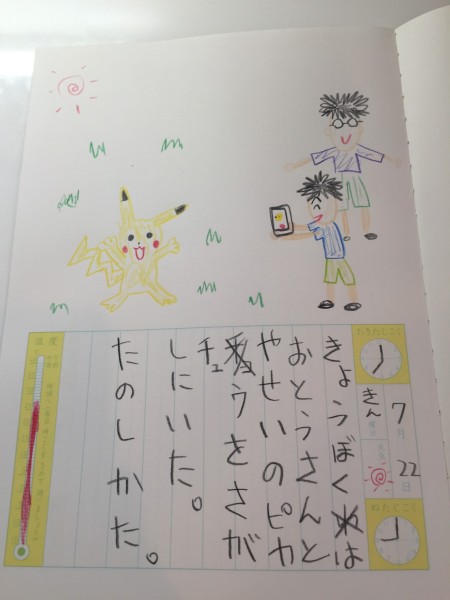 おきたじこく
7月
22日
きん曜日
天気
ねたじこく
きょうぼくは
おとうさんと
やせいのピカ
チュウをさが
しにいた。
たのしかた。
温度